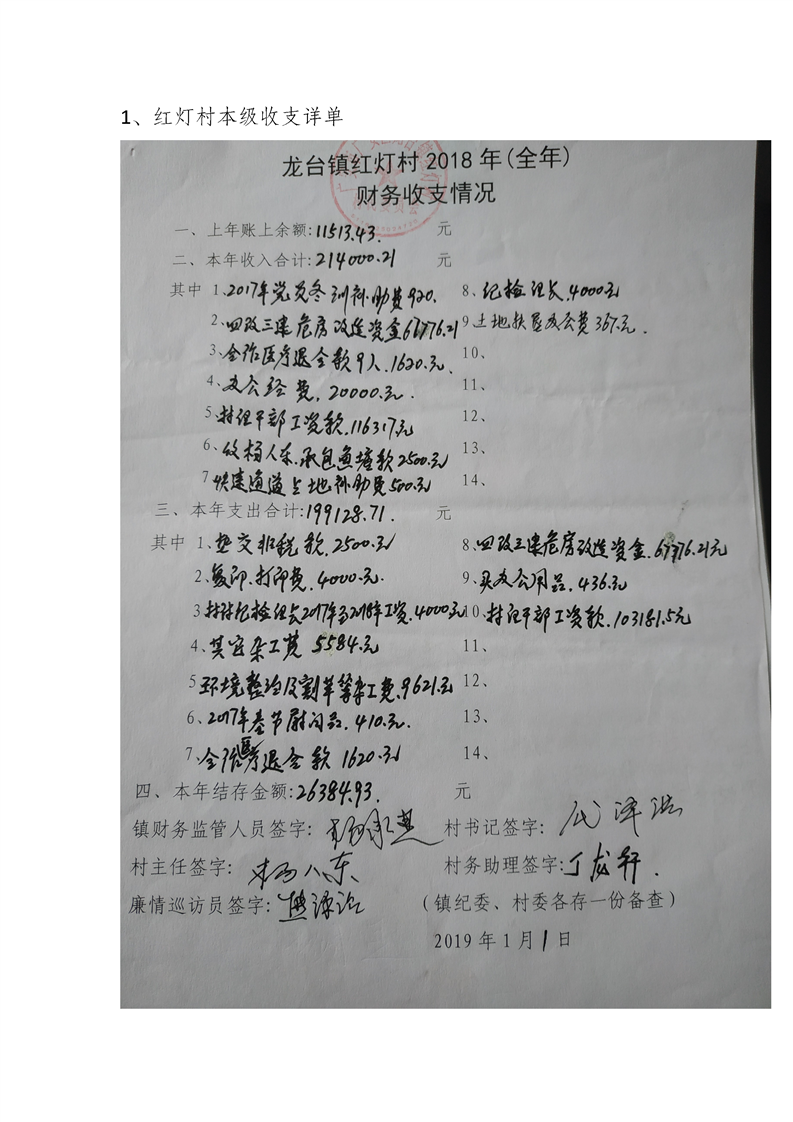 1、红灯村本级收支详单
龙台镇红灯村2018年(全年)
财务收支情况
一、上年账上余额:11513.43. 元
二、本年收入合计:214000.21 元
其中 1、2017年党员冬训补助费920. 8、纪检组长.4000元
2、四改三建危房改造资金67776.21 9、土地扶贫办公费367.元.
3、合作医疗退金款9人.1620.元. 10、
4、办公经费.20000.元. 11、
5、村组干部工资款.116317元 12、
6、收杨人东.承包鱼塘款2500.元 13、
7、快速通道占地补助费500.元 14、
三、本年支出合计:199128.71. 元
其中 1、垫交非税款.2500.元 8、四改三建危房改造资金.67776.21元
2、复印.打印费.4000元. 9、买办公用品.436.元
3、村纪检组长2017年与2018年工资.4000元 10、村组干部工资款.103181.5元
4、其它杂工费 5584.元 11、
5、环境整治及割草等杂工费.9621.元 12、
6、2017年春节慰问品.410.元. 13、
7、合作医疗退金款 1620.元 14、
四、本年结存金额:26384.93. 元
镇财务监管人员签字: 村书记签字:
村主任签字: 杨人东 村务助理签字:丁龙轩.
廉情巡访员签字: (镇纪委、村委各存一份备查)
2019年1月1日